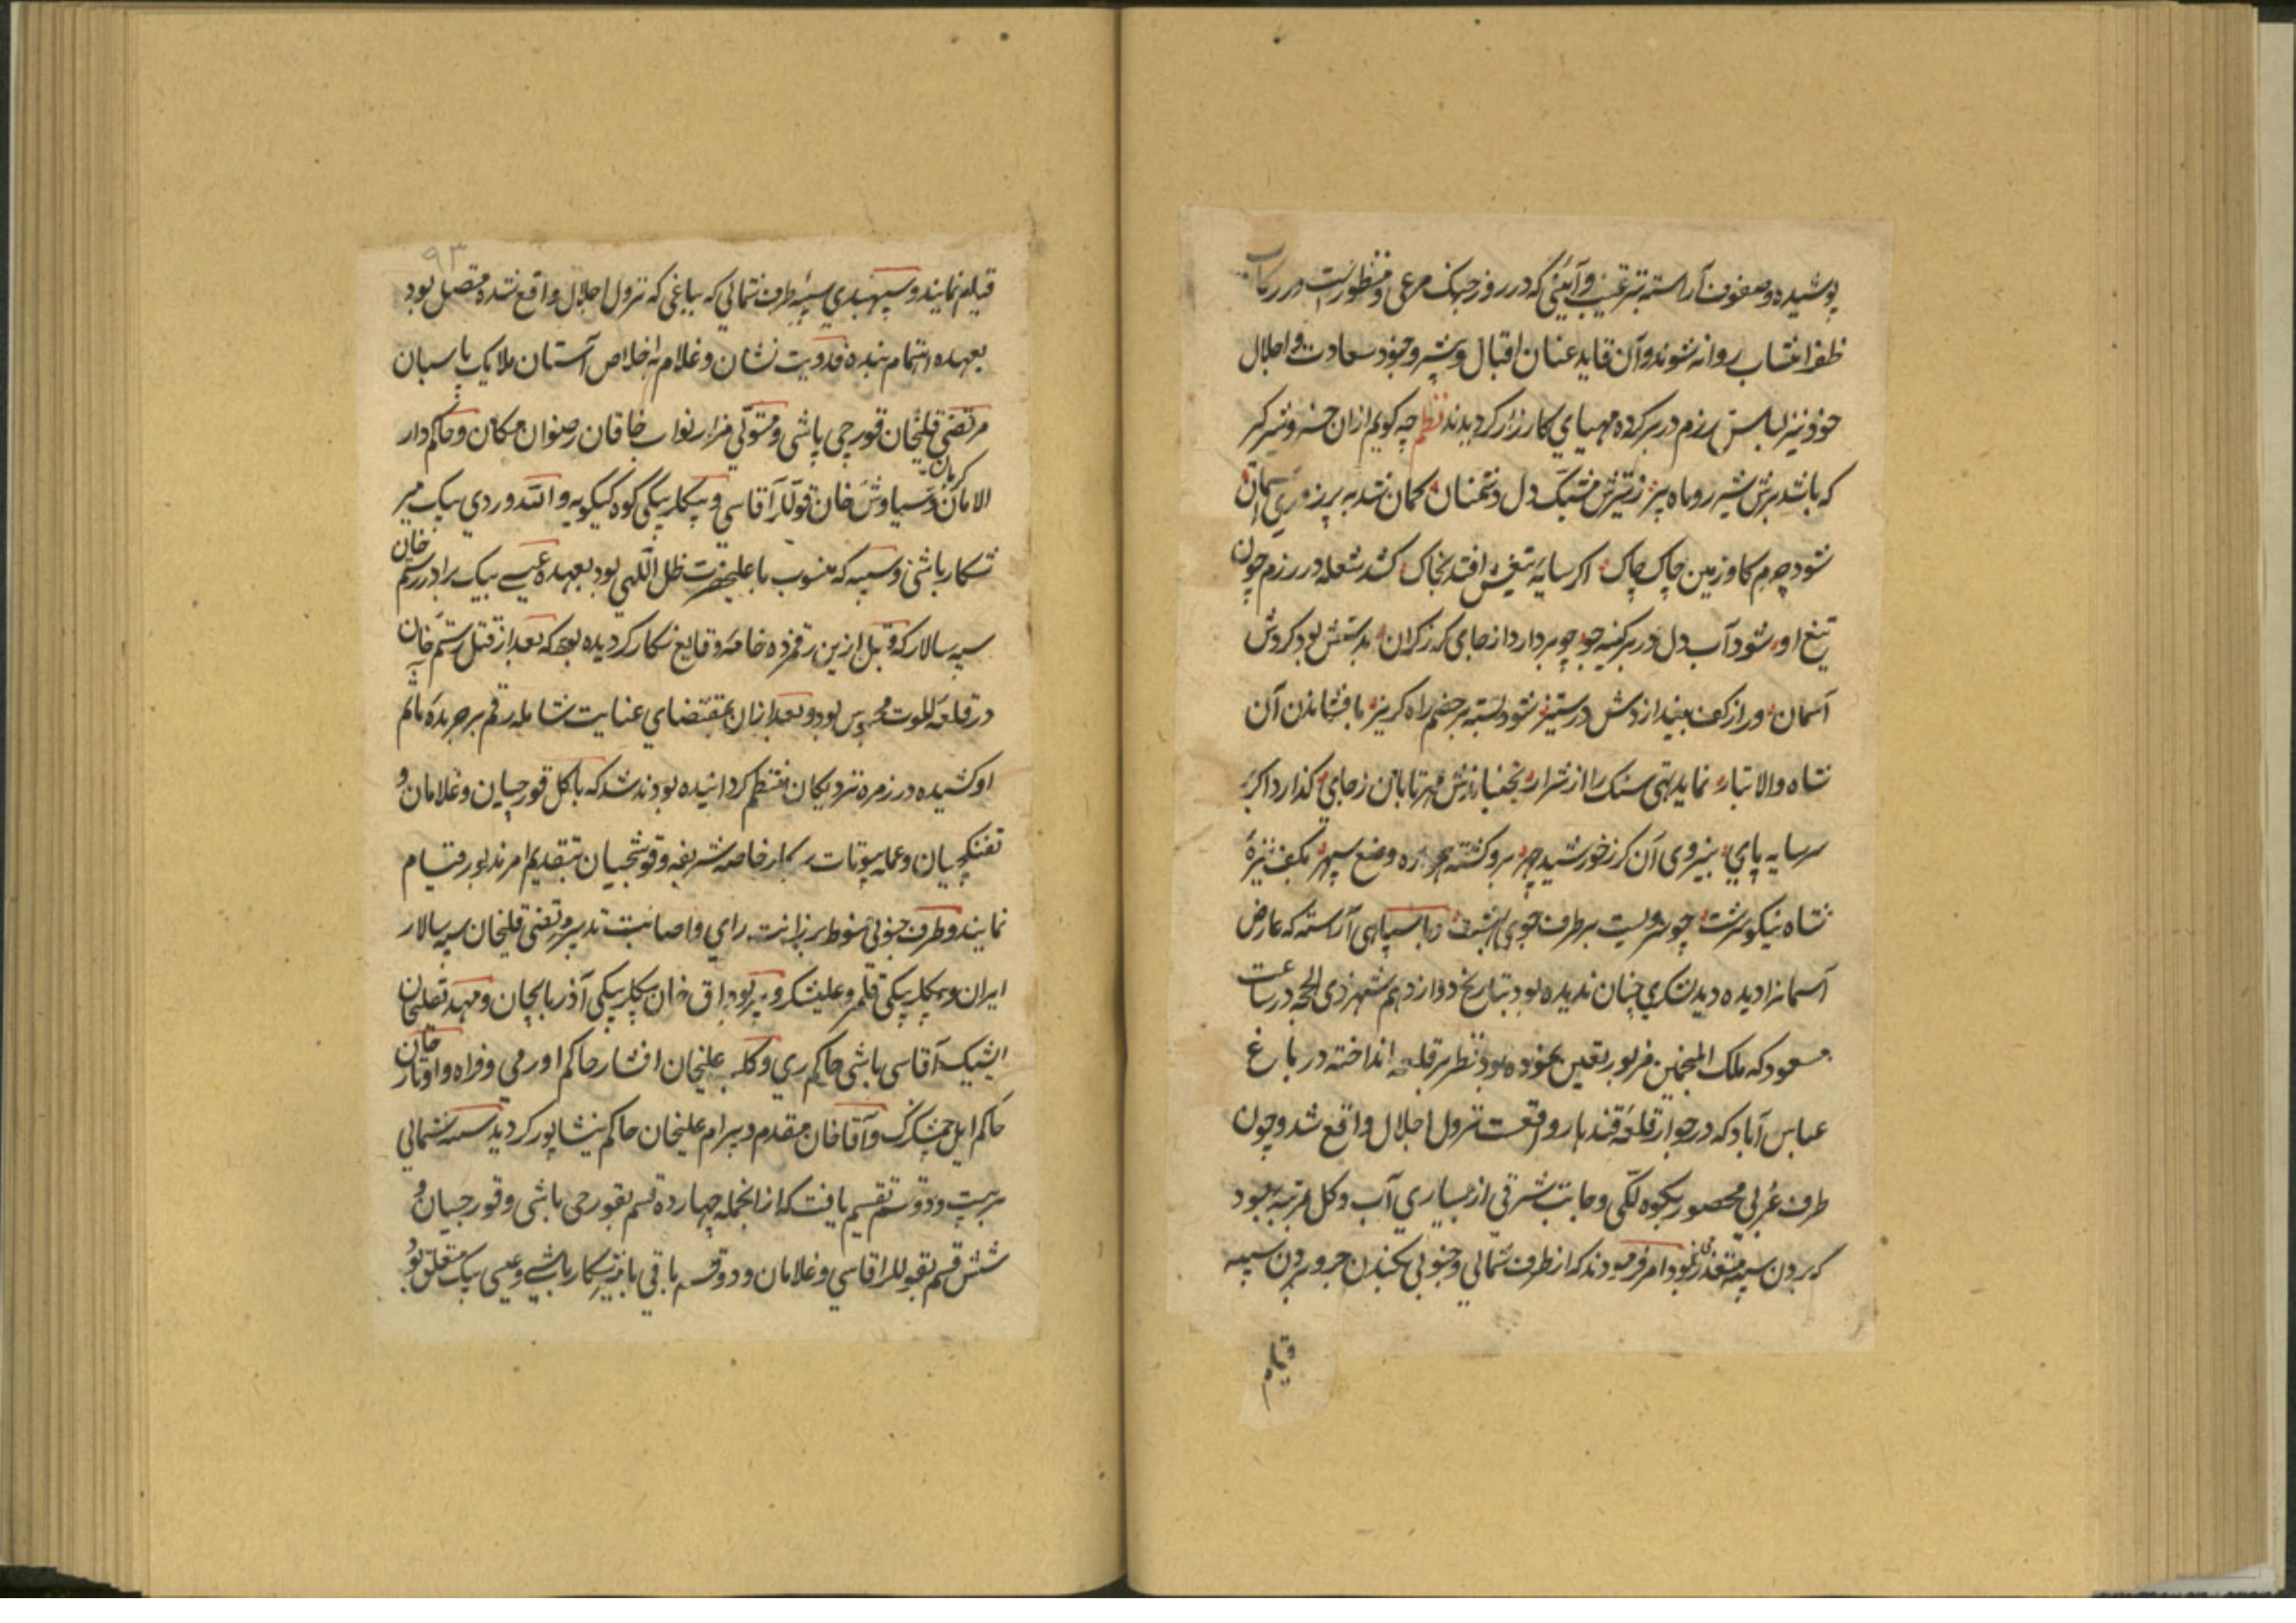 پوشیده و صفوف آراسته بترتیب و آئینی که در روز جنک مرعی و منظورست در رکاب
ظفر انتساب روانه شوند و آن قاید عنان اقبال و پیشرو جنود سعادت و اجلال
خود نیز لباس رزم در بر کرده مهیای کارزار کردیدند نظم چه کویم ازان خسرو شیرکیر
که باشد برش شیر روباه پیر ز تیرش مشبک دل دشمنان کمان نشد به پرزوری آسمان
شود جرم کاو زمین چاک چاک اکر سایه تیغش افتد بخاک کشد شعله در رزم چون
تیغ او شود آب دل در بر کینه جو چو بردارد از جای کرز کران بدستش بود کردش
آسمان ور از کف بیندازدش در ستیز شود بسته بر خصم راه کریز بافشاندن آن
شاه والا تبار نماید تهی سنک را از شرار بجنباندش مهر تابان ز جای کذارد اکر
سر سایه پای بنیروی آن کرز خورشید چهر برو کشته همواره وضع سپهر بکف نیزه
شاه نیکو سرشت چو سرویست بر طرف جوی بهشت و با سپاهی آراسته که عارض
آسمانرا دیده دید لشکری چنان ندیده بود بتاریخ دوازدهم شهر ذی الحجه در ساعت
مسعود که ملک المنجمین مزبور تعیین نموده بود نظر بر قلعه انداخته در باغ
عباس آباد که در جوار قلعه قندهار واقعست نزول اجلال واقع شد و چون
طرف غربی محصور بکوه لکی و جانب شرقی از بسیاری آب و کل مرتبه بود
که بردن سیبه متعذر می نمود امر فرمودند که از طرف شمالی و جنوبی بکندن جر و بردن سیبه
قیام
۹۳
قیام نمایند و سپهبدی سیبه طرف شمالی که بباغی که نزول اجلال واقع شده متصل بود
بعهده اهتمام بنده فدویت نشان و غلام با اخلاص آستان ملایک پاسبان
مرتضی قلیخان قورچی باشی و متولی مزار نواب خاقان رضوان مکان و حاکم دار
الامان کرمان و سیاوش خان قوللر آقاسی و بیکلربیکی کوه کیلویه و الله وردی بیک میر
شکار باشی و سیبه که منسوب باعلیحضرت ظل اللهی بود بعهده عیسی بیک برادر رستم خان
سپه سالار که قبل ازین رقمزده خامه وقایع نکار کردیده بود که بعد از قتل رستم خان
در قلعه الموت محبوس بود و بعد ازان بمقتضای عنایت شامله رقم بر جریده مآثم
او کشیده در زمره نزدیکان منتظم کردانیده بودند شد که با کل قورچیان و غلامان و
تفنکچیان و عمله بیوتات سرکار خاصه شریفه و قوشچیان بتقدیم امر مزبور قیام
نمایند و طرف جنوبی منوط برزانت رای و اصابت تدبیر مرتضی قلیخان سپه سالار
ایران و بیکلربیکی قلمرو علیشکر و پیربوداق خان بیکلربیکی آذربایجان و مهدیقلیخان
ایشیک آقاسی باشی حاکم ری و کلبعلیخان افشار حاکم اورمی و فراه و اوتار خان
حاکم ایل چمشکزک و آقاخان مقدم و بیرام علیخان حاکم نیشاپور کردید سیبه شمالی
بر بیست و دو قسم تقسیم یافت که از انجمله چهارده قسم بقورچی باشی و قورچیان و
شش قسم بقوللر اقاسی و غلامان و دو قسم باقی بامیر شکار باشی و عیسی بیک متعلق بود